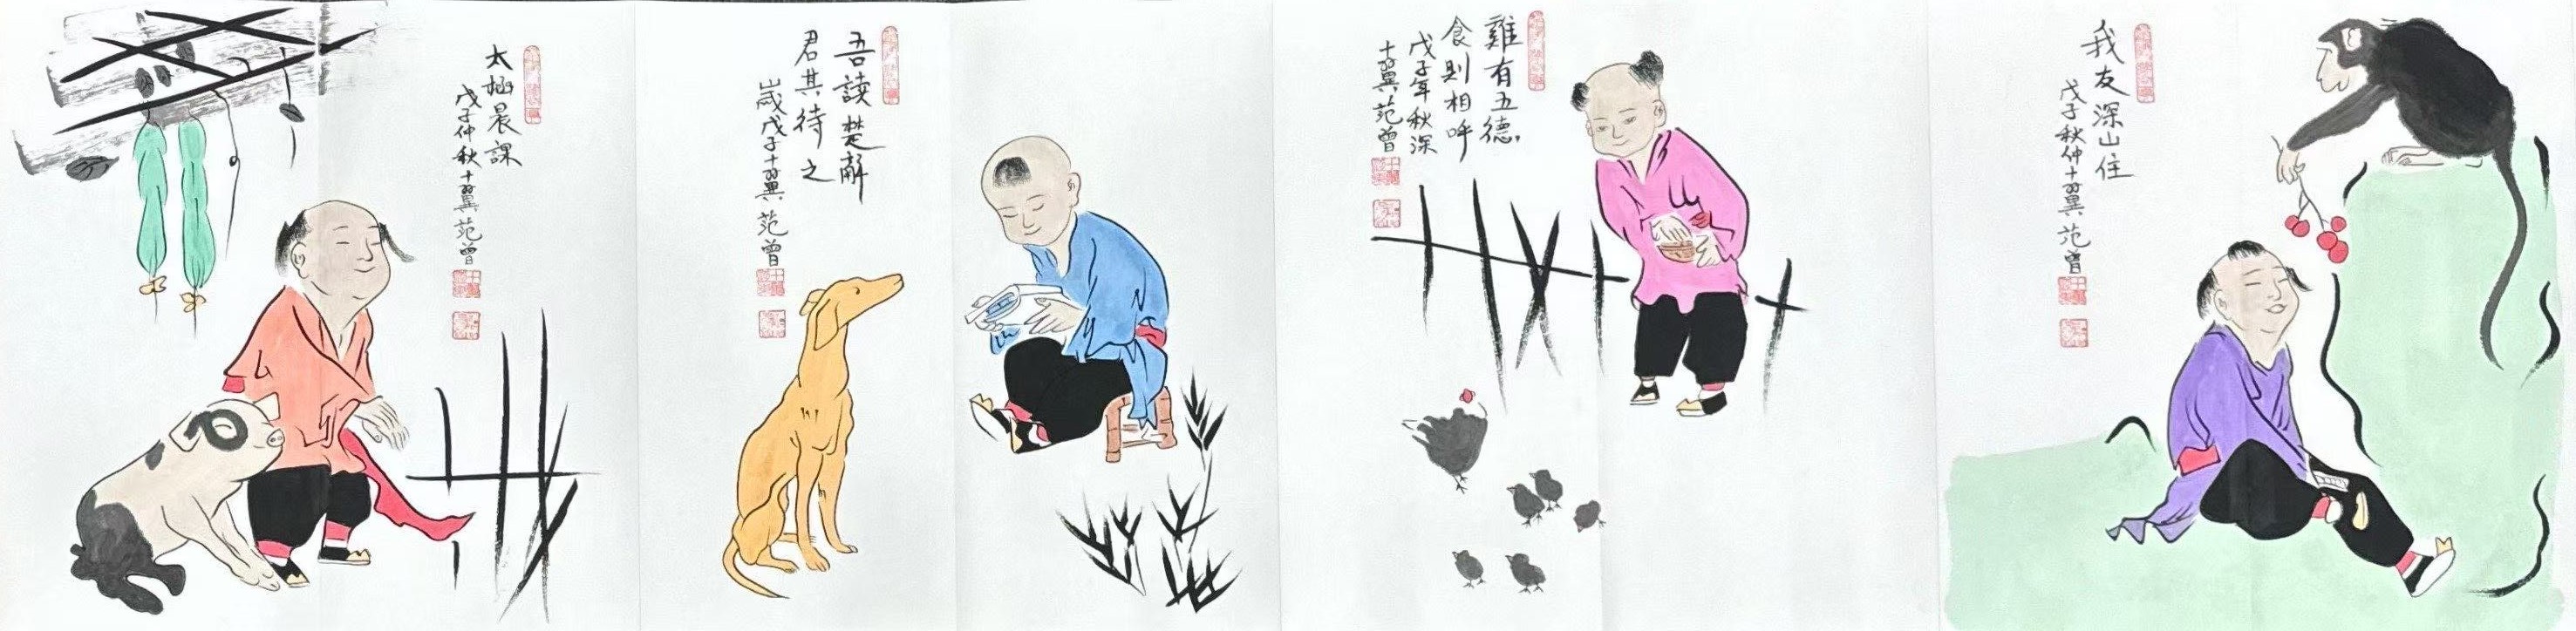 我友深山住
戊子秋仲十翼范曾
雞有五德
食則相呼
戊子年秋深
十翼范曾
吾读楚辭
君其待之
歲戊子十翼范曾
太極晨課
戊子仲秋十翼范曾